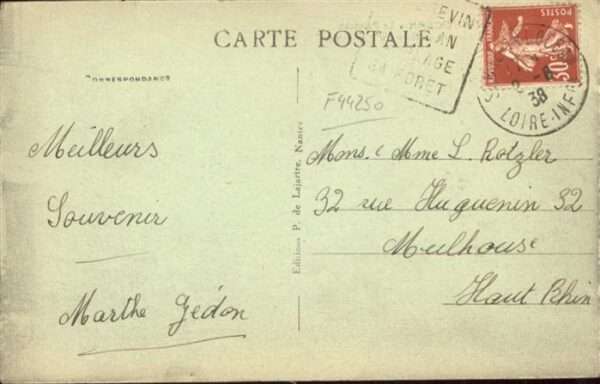 CARTE POSTALE
EVIN
AN
AGE
FORET
POSTES
30c
8
38
LOIRE-INF
CORRESPONDANCE
F44250
Meilleurs
Souvenir
Marthe Gédon
Editions P. de Lajartre, Nantes
Mons. e Mme L. Rotzler
32 rue Huguenin 32
Mulhouse
Haut Rhin